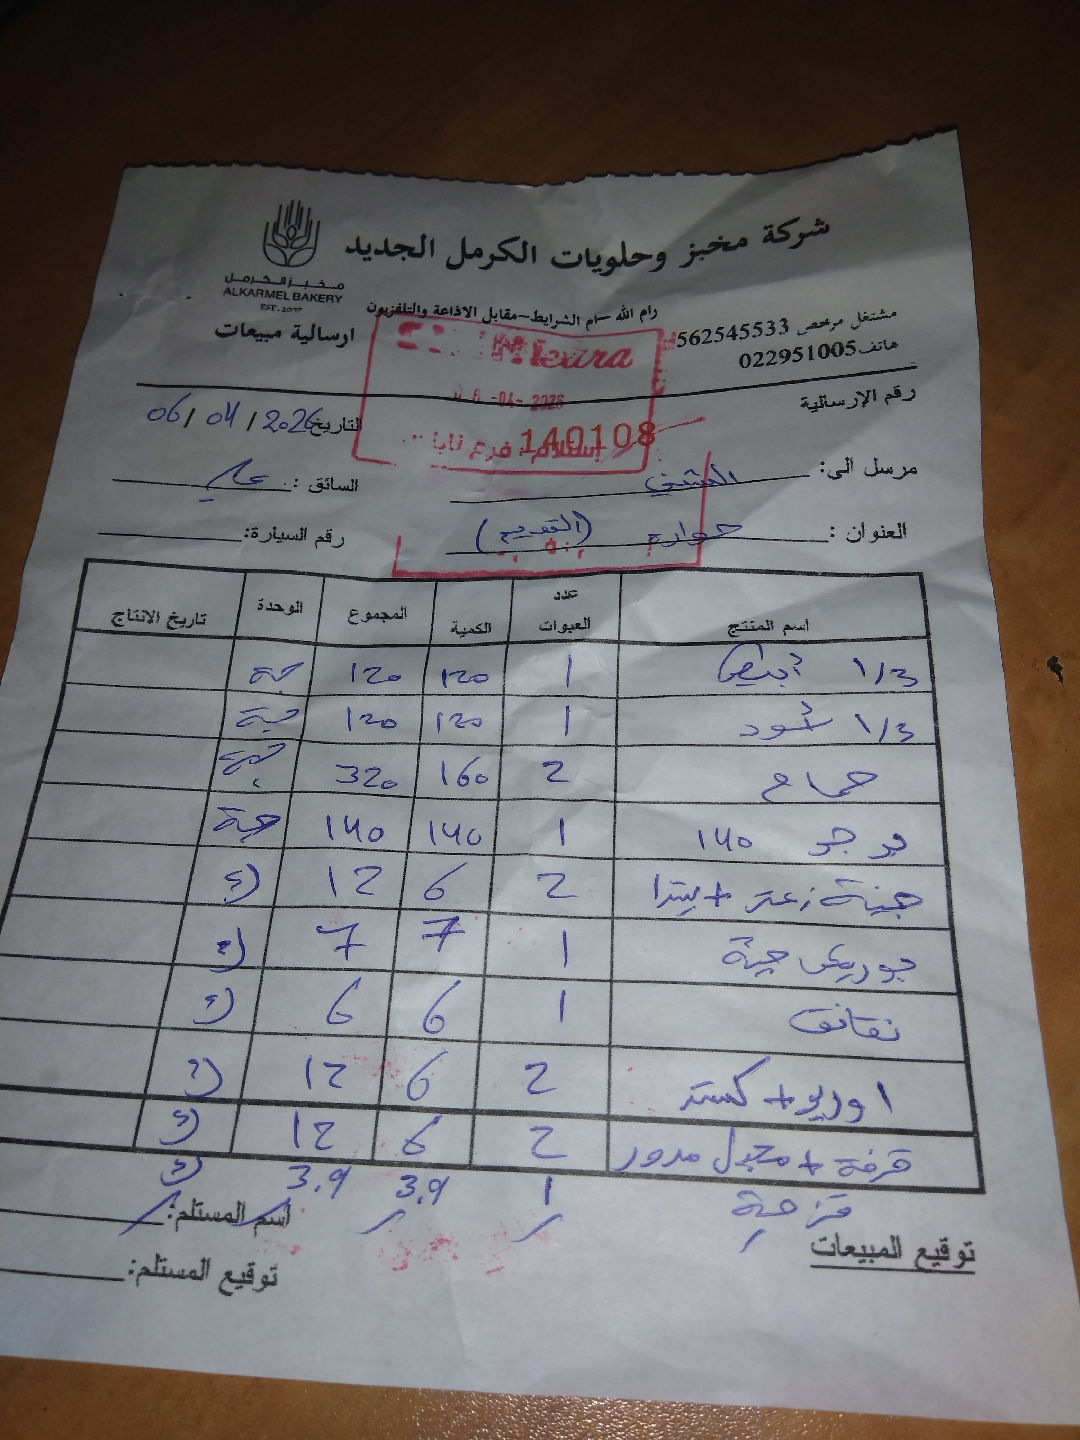 شركة مخبز وحلويات الكرمل الجديد
مخبز الكرمل
ALKARMEL BAKERY
EST. 2007
رام الله -ام الشرايط-مقابل الاذاعة والتلفزيون
مشتغل مرخص 562545533
هاتف 022951005
ارسالية مبيعات
رقم الإرسالية
140108
06-04-2026
التاريخ 06/04/2026
مرسل الى:
السائق :
العنوان : حوارة (القديم)
رقم السيارة:
اسم المنتج عدد العبوات الكمية المجموع الوحدة تاريخ الانتاج
1/3 أبيض 1 120 120 حبة
1/3 أسود 1 120 120 حبة
حمام 2 160 320 حبة
140 1 140 140 حبة
جبنة زعتر + بيتزا 2 6 12
جبنة 1 7 7
نقانق 1 6 6
اوريو + كستر 2 6 12
قرفة + مجدل مدور 2 6 12
قزحية 1 3.9 3.9
اسم المستلم:
توقيع المبيعات
توقيع المستلم: